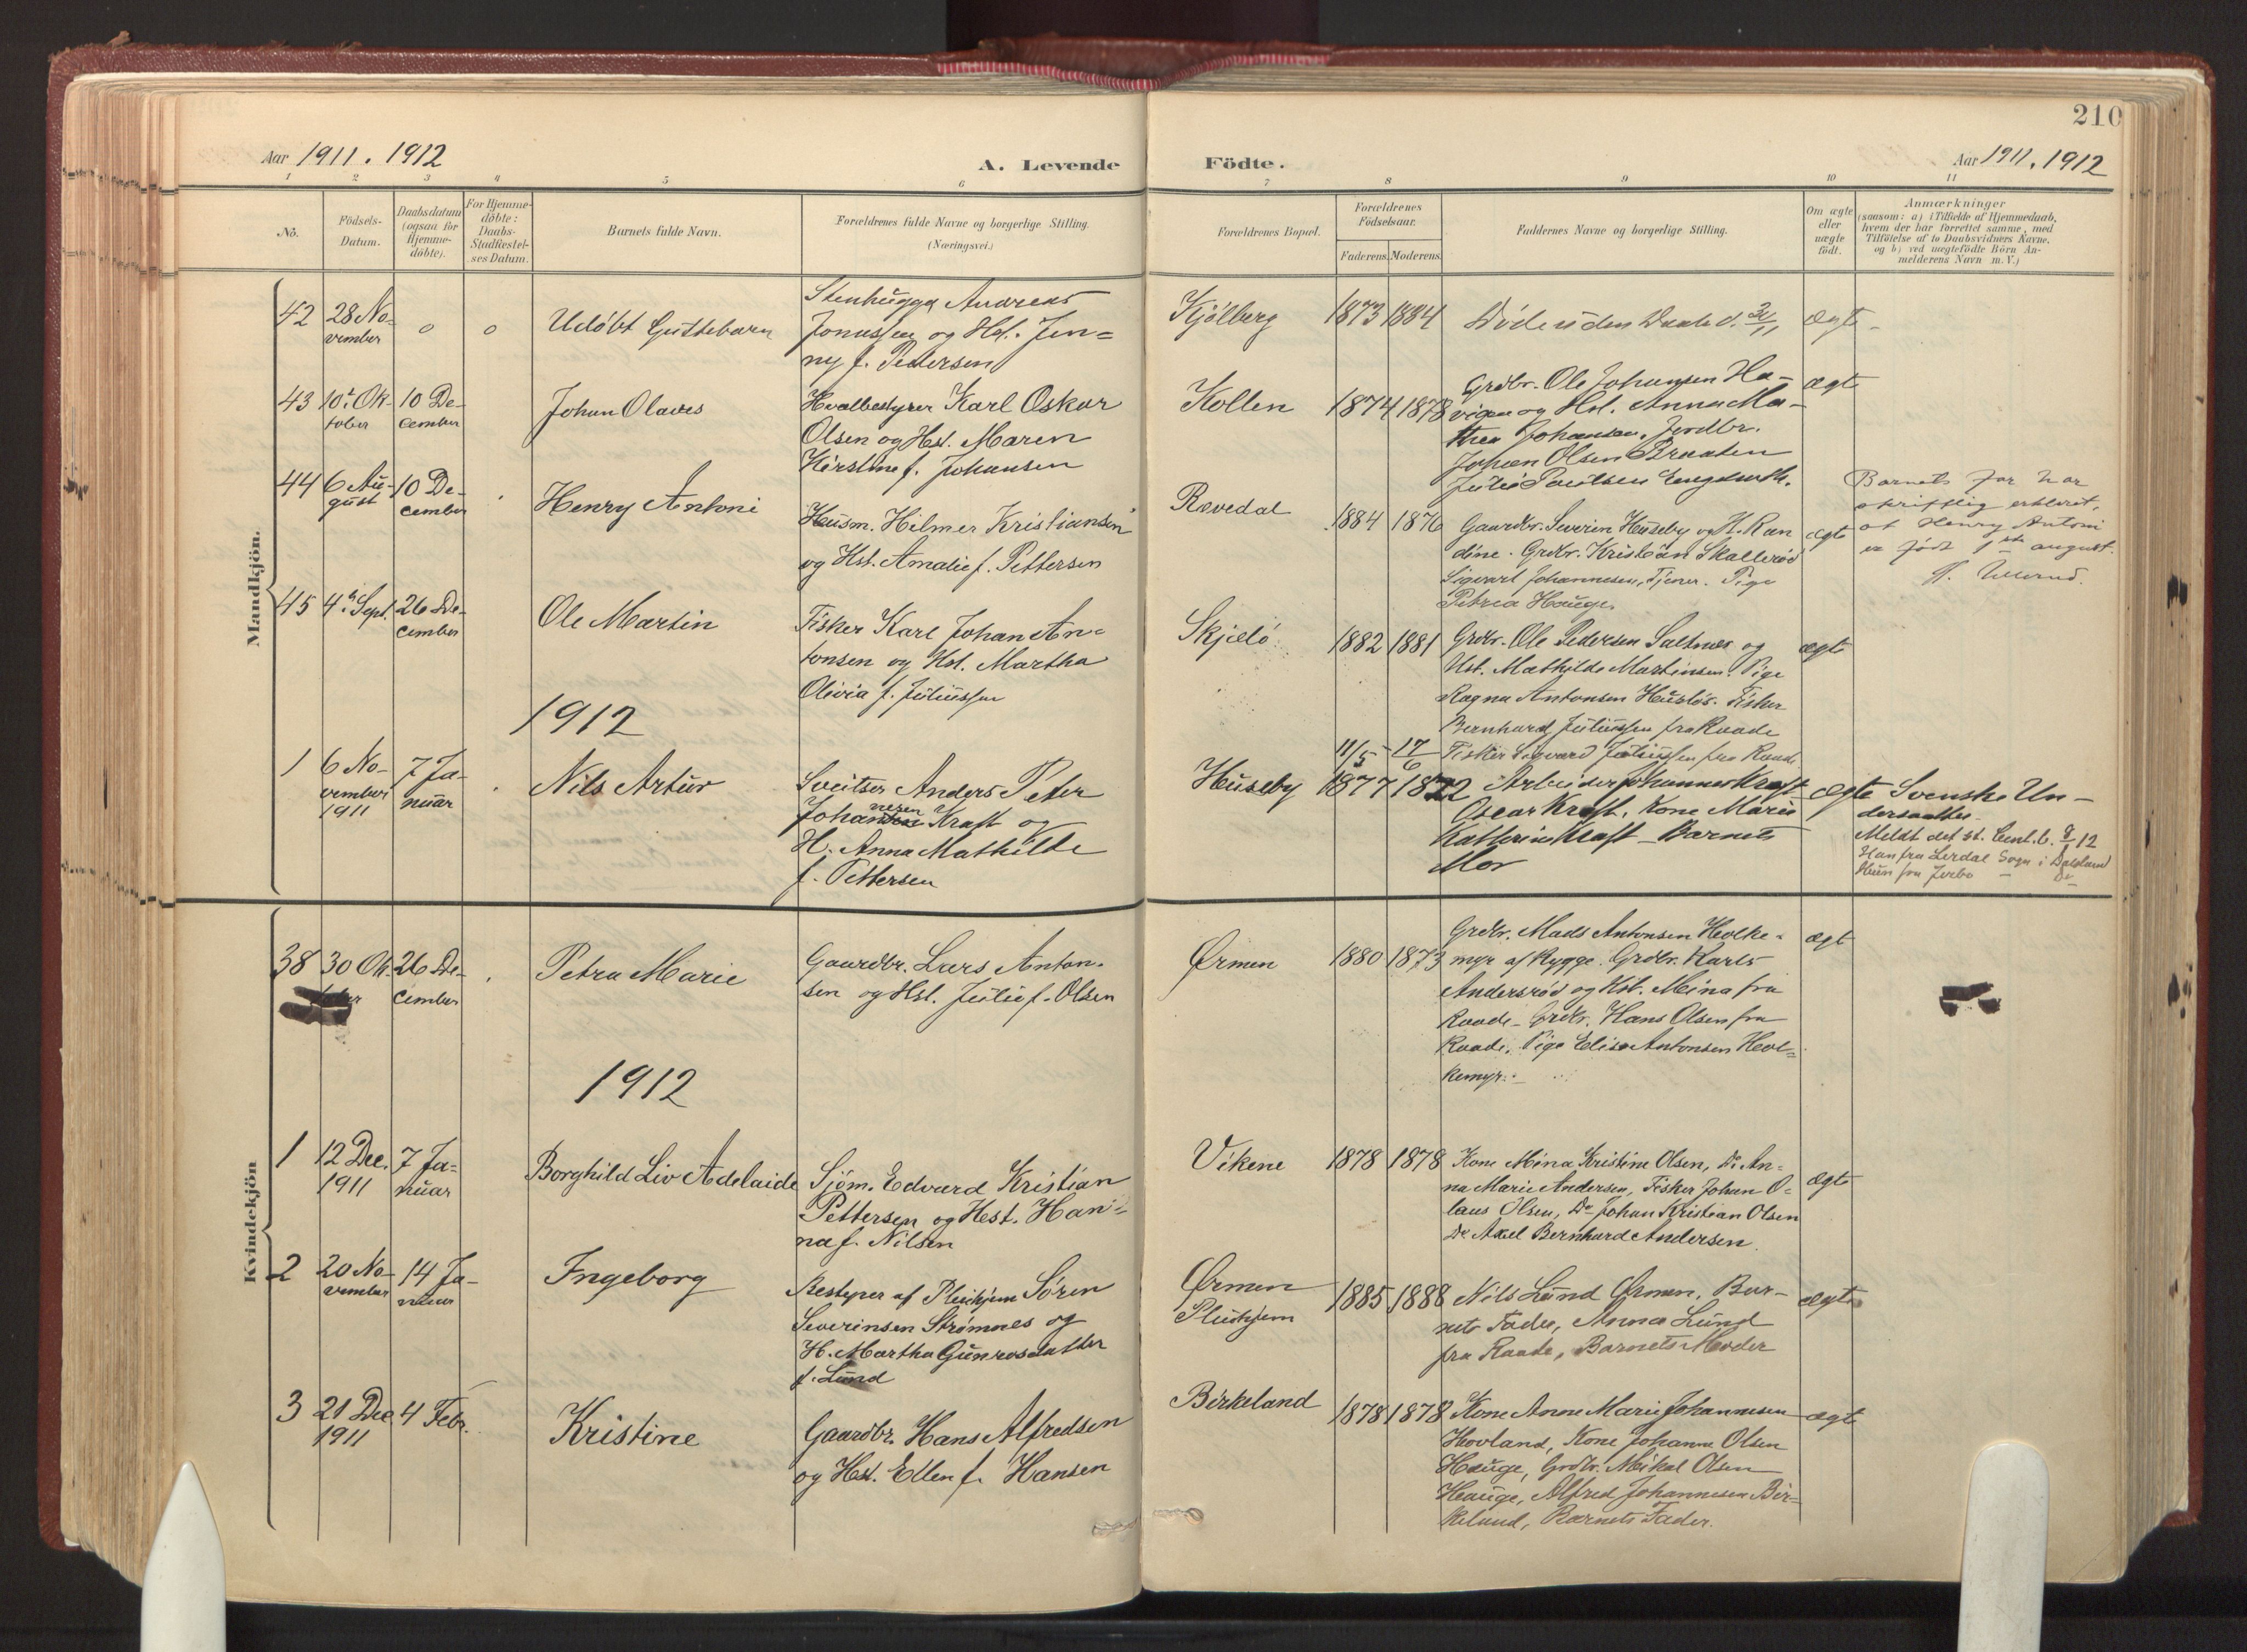 210
Aar 1911. 1912
A. Levende
Födte.
Aar 1911. 1912
1 2 3 4 5 6 7 8 9 10 11
No.
Födsels-
Datum.
Daabsdatum
(ogsaa for
Hjemme-
döbte).
For Hjemme-
döbte:
Daabs-
Stadfæstel-
ses Datum.
Barnets fulde Navn.
Forældrenes fulde Navne og borgerlige Stilling.
(Næringsvei.)
Forældrenes Bopæl.
Forældrenes
Födselsaar.
Faderens. Moderens.
Faddernes Navne og borgerlige Stilling.
Om ægte
eller
uægte
födt.
Anmærkninger
(saasom: a) i Tilfælde af Hjemmedaab,
hvem der har forrettet samme, med
Tilföielse af to Daabsvidners Navne,
og b) ved uægtefödte Börn An-
melderens Navn m. V.)
Mandkjön.
42
28 No-
vember
o
o
Udøbt Guttebarn
Stenhugger Andreas
Jonassen og Hst. Jen=
ny f. Pedersen
Kjølberg
1873 1884
Døde uden Daab d.
ægte
43
10. Ok-
tober
10 De-
cember
Johan Olaves
Karl Oskar
Olsen og Hst. Maren
Kirstine f. Johansen
Kollen
1874 1878
Grdbr. Ole Johansen Ha-
og Hst. Anna Ma-
thea Johansen,
Johan Olsen Braaten
ægte
44
6 Au-
gust
10 De-
cember
Henry Antoni
Husm. Hilmer Kristiansen
og Hst. Amalie f. Pettersen
Rævedal
1884 1876
Gaardbr. Severin Huseby og H. Ran
dine. Grdbr. Kristian Skallerød
Sigvart Johannesen, Tjener. Pige
Petrea Hauge.
ægte
Barnets far har
skriftlig erklæret,
at Henry Antoni
er født august.
45
4. Sept.
26 De-
cember
Ole Martin
Fisker Karl Johan An=
tonsen og Hst. Martha
Olivia f. Juliussen
Skjælø
1882 1881
Grdbr. Ole Pedersen Saltnes og
Hst. Mathilde Martinsen. Pige
Ragna Antonsen Husløs. Fisker
Bernhard Juliussen fra Raade
Fisker Sigvard Juliussen fra Raade
ægte
1912
1
6 No-
vember
1911
7 Ja-
nuar
Nils Artur
Sveitser Anders Peter
Johannesen Kraft og
H. Anna Mathilde
f. Pettersen
Huseby
11/5 17/6
1877 1872
Arbeider Johannes Kraft
Oscar Kraft, Kone Marie
Kathrine Kraft – Barnets
Mor
ægte
Svenske Un-
dersaatter.
Meldt det st. Cent. b. 8/1 12
Han fra Lerdal Sogn i Dalsland
Hun fra Do
Kvindekjön
38
30 Ok-
tober
26 De-
cember
Petra Marie
Gaardbr. Lars Anton-
sen og Hst. Julie f. Olsen
Ørmen
1880 1873
Grdbr. Mads Antonsen Holke-
myr af Rygge. Grdbr. Karls
Andersrød og Hst. Mina fra
Raade – Grdbr. Hans Olsen fra
Raade. Pige Elise Antonsen Hol=
kemyr. –
ægte
1912
1
12 Dec.
1911
7 Ja-
nuar
Borghild Liv Adelaide
Sjøm. Edvard Kristian
Pettersen og Hest. Han-
na f. Nilsen
Vikene
1878 1878
Kone Mina Kristine Olsen, Do An=
na Marie Andersen, Fisker Johan O=
laus Olsen, Do Johan Kristian Olsen
Do Axel Bernhard Andersen.
ægte
2
20 No-
vember
14 Ja-
nuar
Ingeborg
Bestyrer af Pleiehjem Søren
Severinsen Strømnes og
H. Martha Gunrosdatter
f. Lund
Ørmen
Pleiehjem
1885 1888
Nils Lund Ørmen, Bar-
nets Fader, Anna Lund
fra Raade, Barnets Moder
ægte
3
21 Dec
1911
4 Febr.
Kristine
Gaardbr. Hans Alfredsen
og Hst. Ellen f. Hansen
Birkeland
1878 1878
Kone Anne Marie Johannesen
Hovland, Kone Johanne Olsen
Hauge, Grdbr. Mikal Olsen
Hauge, Alfred Johannesen Bir=
keland, Barnets Fader.
ægte